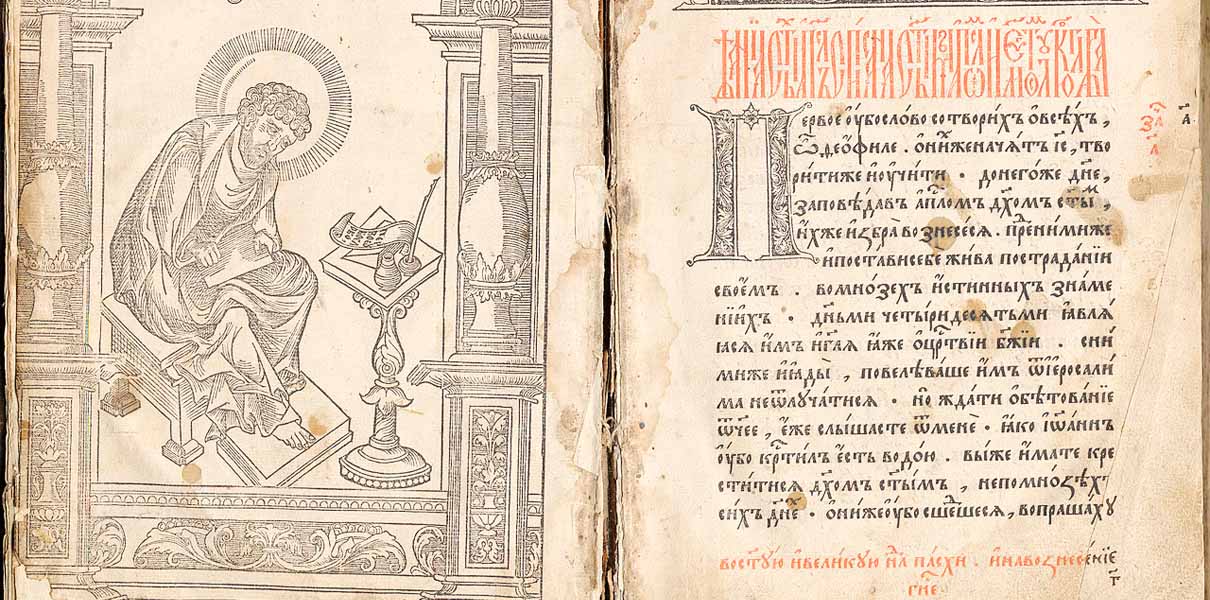 Первое ѹ҆́бо сло́во сотвори́хъ ѻ҆всѣ́хъ ,
ѽ део́філе . ѻ҆ни́хженача́тъ і҆с҃ , тво
ри́тиже и҆ѹ҆чи́ти · донего́же дн҃е ,
заповѣ́давъ а҆пⷭ҇ломъ дх҃омъ ст҃ыⷨ ,
и҆́хже и҆збра̀ вознесе́сѧ . преⷣни́миже
и҆поста́висебе жи́ва пострада́нїи
свое́мъ . вомно́зехъ и҆́стинныхъ зна́ме
нїихъ · дн҃ьми четы́ридесѧтьми ꙗ҆влѧ́
ꙗсѧ и҆̀мъ и҆гл҃ѧ ꙗ҆́же ѻ҆црⷭ҇твїи бж҃їи . сни́
миже и҆ꙗ́ды , повелѣ́ваше и҆̀мъ ѿі҆ероса́ли
ма неѿлꙋча́тисѧ · но жда́ти ѻ҆бѣтова́нїе
ѿч҃ее , є҆́же слы́шасте ѿменѐ · ꙗ҆́ко і҆ѡ҆а́ннъ
ѹ҆́бо крⷭ҇ти́лъ є҆́сть водо́ю . вы́же и҆́мате кре
сти́тисѧ дх҃омъ ст҃ы́мъ , непомно́ѕѣхъ
си́хъ дн҃е · ѻ҆ни́жеѹ҆бо сше́дшесѧ , вопраша́хꙋ
востꙋ́ю и҆вели́кꙋю нⷣлѧ па́схи . и҆навознесе́нїе
гн҃е